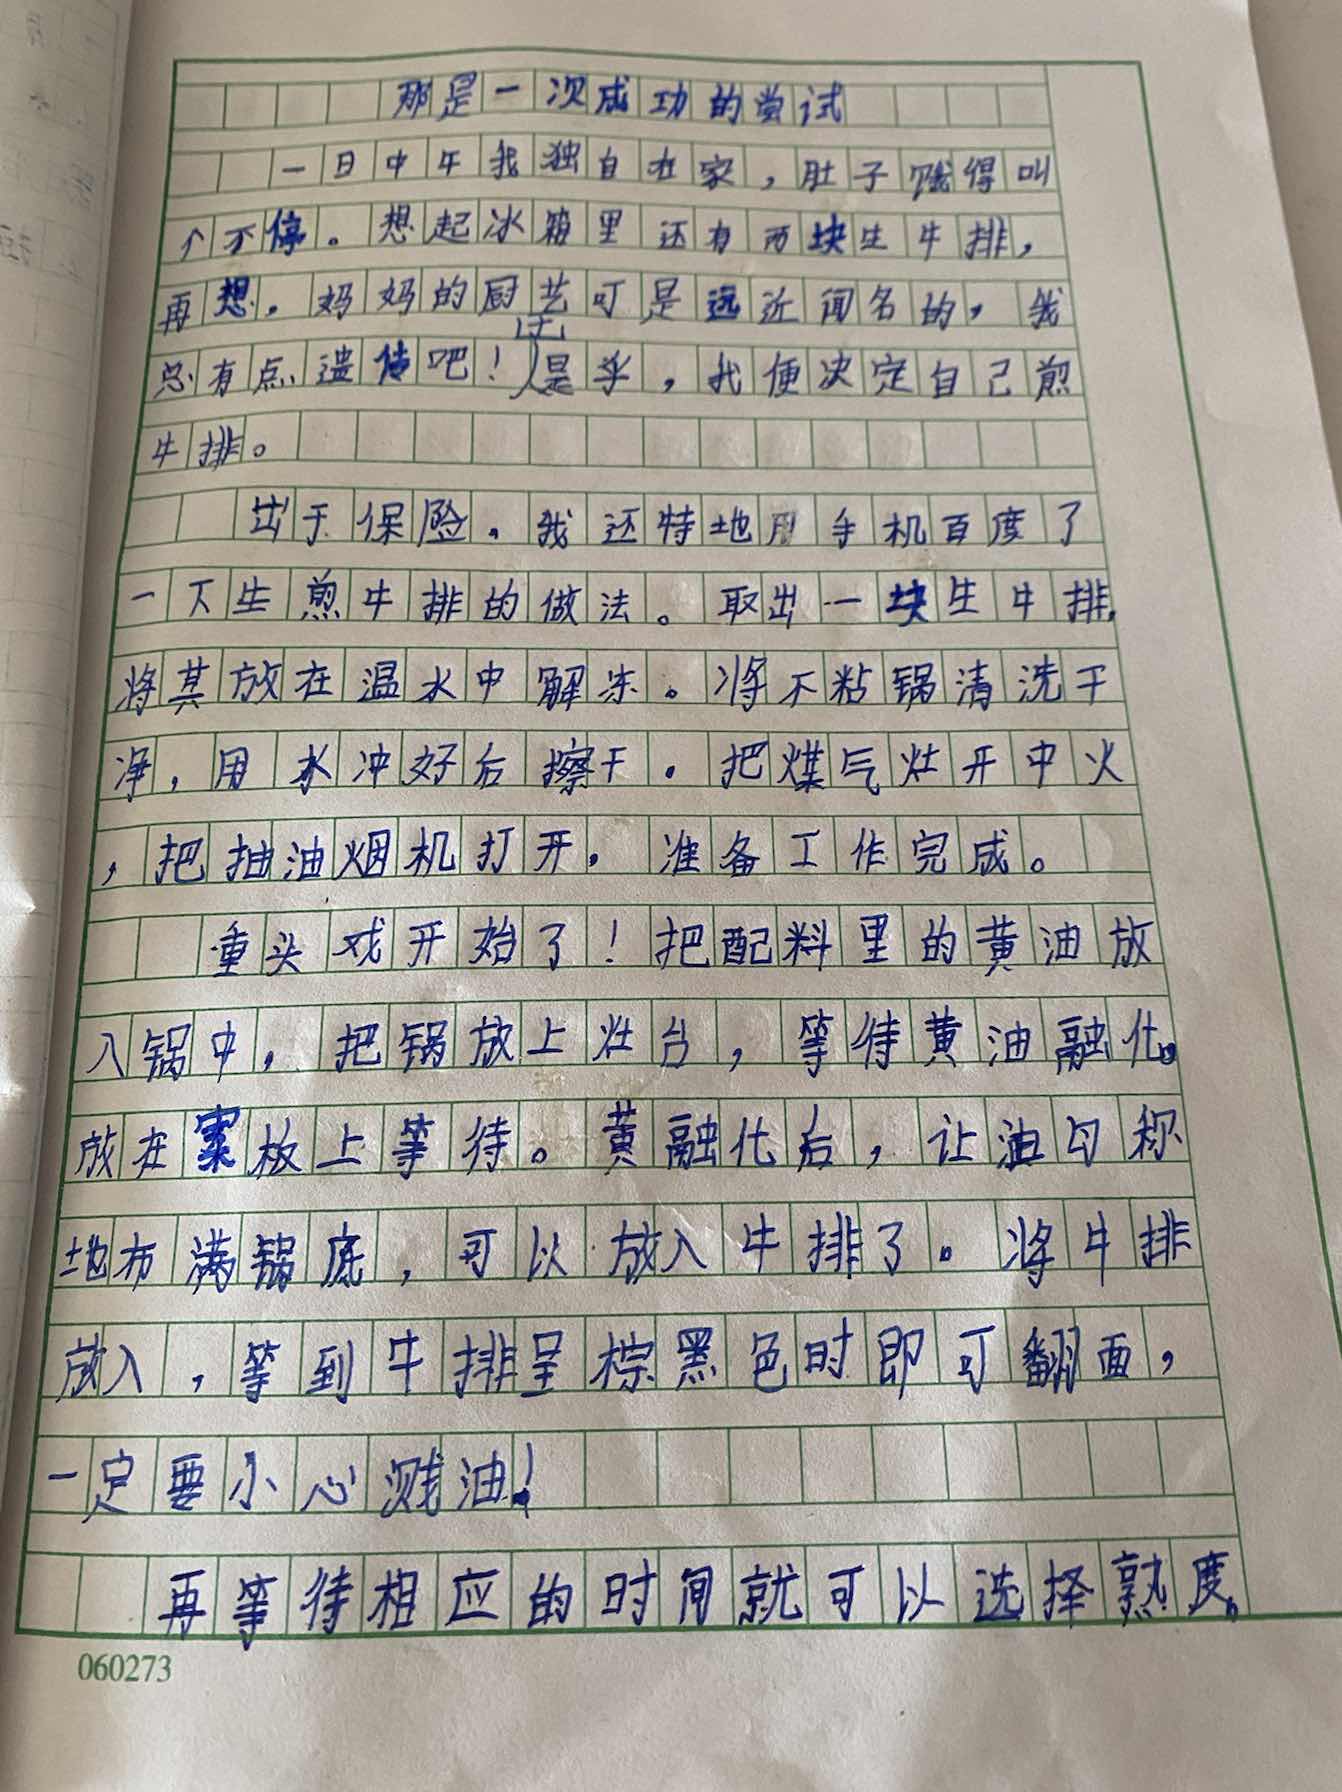 那是一次成功的尝试
一日中午我独自在家，肚子饿得叫
个不停。想起冰箱里还有两块生牛排，
再想，妈妈的厨艺可是远近闻名的，我
总有点遗传吧！于是乎，我便决定自己煎
牛排。
出于保险，我还特地用手机百度了
一下生煎牛排的做法。取出一块生牛排，
将其放在温水中解冻。将不粘锅清洗干
净，用水冲好后擦干。把煤气灶开中火
，把抽油烟机打开，准备工作完成。
重头戏开始了！把配料里的黄油放
入锅中，把锅放上灶台，等待黄油融化。
放在案板上等待。黄融化后，让油匀称
地布满锅底，可以放入牛排了。将牛排
放入，等到牛排呈棕黑色时即可翻面，
一定要小心溅油！
再等待相应的时间就可以选择熟度。
060273